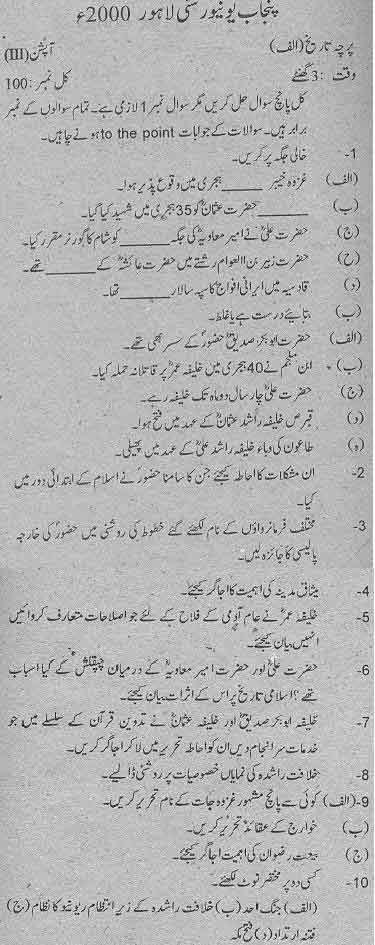 پنجاب یونیورسٹی لاہور 2000ء
پرچہ تاریخ (الف) آپشن (III)
وقت : 3 گھنٹے کل نمبر : 100
کل پانچ سوال حل کریں مگر سوال نمبر 1 لازمی ہے۔ تمام سوالوں کے نمبر
برابر ہیں۔ سوالات کے جوابات to the point ہونے چاہیں۔
1- خالی جگہ پر کریں۔
(الف) غزوہ خیبر ______ ہجری میں وقوع پذیر ہوا۔
(ب) ______ حضرت عثمانؓ کو 35 ہجری میں شہید کیا گیا۔
(ج) حضرت علیؓ نے امیر معاویہؓ کی جگہ ______ کو شام کا گورنر مقرر کیا۔
(ح) حضرت زبیر بن العوام رشتے میں حضرت عائشہؓ کے ______ تھے۔
(د) قادسیہ میں ایرانی افواج کا سپہ سالار ______ تھا۔
(ب) بتائیے درست ہے یا غلط۔
(الف) حضرت ابوبکر صدیقؓ حضورؐ کے سسر بھی تھے۔
(ب) ابن ملجم نے 40 ہجری میں خلیفہ عمرؓ پر قاتلانہ حملہ کیا۔
(ج) حضرت علیؓ چار سال دو ماہ تک خلیفہ رہے۔
(د) قبرص خلیفہ راشد عثمانؓ کے عہد میں فتح ہوا۔
(ہ) طاعون کی وباء خلیفہ راشد علیؓ کے عہد میں پھیلی۔
2- ان مشکلات کا احاطہ کیجئے جن کا سامنا حضورؐ نے اسلام کے ابتدائی دور میں
کیا۔
3- مختلف فرمانرواؤں کے نام لکھے گئے خطوط کی روشنی میں حضورؐ کی خارجہ
پالیسی کا جائزہ لیں۔
4- میثاق مدینہ کی اہمیت کا اجاگر کیجئے۔
5- خلیفہ عمرؓ نے عام آدمی کے فلاح کے لئے جو اصلاحات متعارف کروائیں
انہیں بیان کیجئے۔
6- حضرت علیؓ اور حضرت امیر معاویہؓ کے درمیان چپقلش کے کیا اسباب
تھے؟ اسلامی تاریخ پر اس کے اثرات بیان کیجئے۔
7- خلیفہ ابوبکر صدیقؓ اور خلیفہ عثمانؓ نے تدوین قرآن کے سلسلے میں جو
خدمات سرانجام دیں ان کو احاطہ تحریر میں لا کر اجاگر کریں۔
8- خلافت راشدہ کی نمایاں خصوصیات پر روشنی ڈالیے۔
9- (الف) کوئی سے پانچ مشہور غزوہ جات کے نام تحریر کریں۔
(ب) خوارج کے عقائد تحریر کریں۔
(ج) بیعت رضوان کی اہمیت اجاگر کیجئے۔
10- کسی دو پر مختصر نوٹ لکھئے۔
(الف) جنگ احد (ب) خلافت راشدہ کے زیر انتظام ریونیو کا نظام (ج)
فتنہ ارتداد (د) فتح مکہ